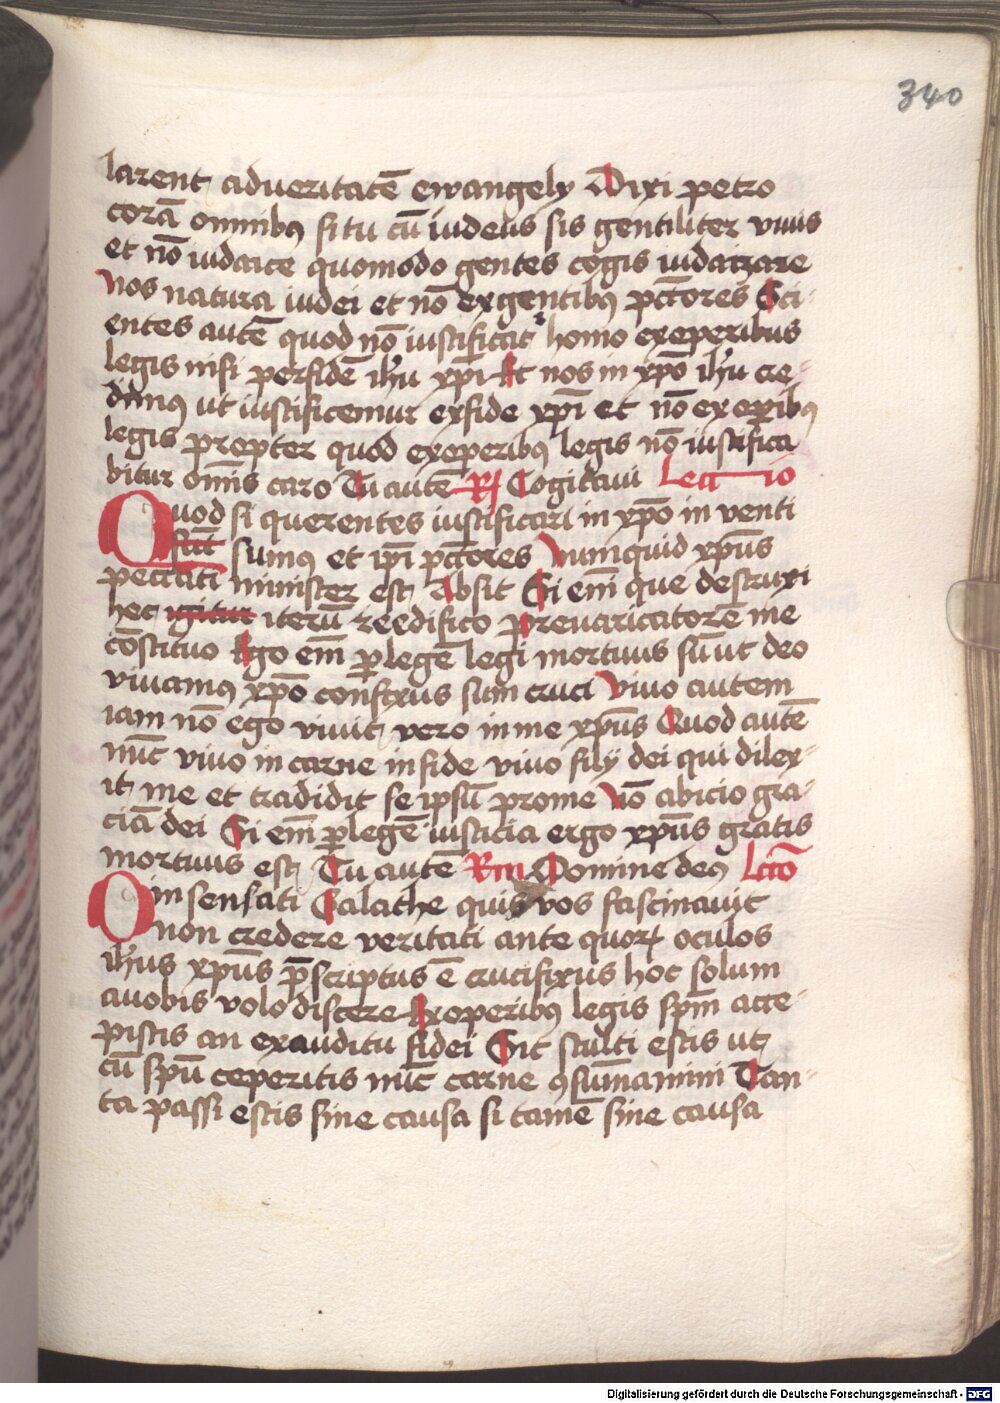 340
larent adueritatē ewangely Dixi petro
corā omnibꝯ si tu cū iudeus sis gentiliter viuis
et nō iudaice quomodo gentes cogis iudaizare
Nos natura iudei et nō exgentibꝯ pctōres Sci-
entes autē quod nō iustificat᷑ homo exoperibus
legis nisi perfidē ihū xpī Et nos in xpō ihū cre-
dimꝯ ut iustificemur exfide xpī et nō exoperibꝯ
legis propter quod exoperibꝯ legis nō iustifica
bitur om̄is caro Tu autē R Cogitaui Lectio
Quod si querentes iustificari in xpō in venti
sūt sumꝯ et ip̄i pctōres Numquid xpūs
peccati minister est Absit Si em̄ que destruxi
hec igitur iterū reedifico p̱reuaricatorē me
cōstituo Ego em̄ p̱ legē legi mortuus sū ut deo
viuamꝯ xpō confixus sum cruci Viuo autem
iam nō ego viuit vero in me xpūs Quod autē
nūc viuo in carne in fide viuo fily dei qui dilex-
it me et tradidit se ipsū prome Nō abicio gra-
ciā dei Si em̄ p̱ legē iusticia ergo xpūs gratis
mortuus est Tu autē Rm Domine deꝯ Lctō
O insensati Galathe quis vos fascinauit
non credere veritati ante quorꝝ oculos
ihūs xpūs p̄scriptus ē crucifixus hoc solum
auobis volo discere Exoperibꝯ legis spm̄ acce-
pistis an exauditu fidei Sic stulti estis ut
cū spū ceperitis nūc carne ꝯsūmamini Tan-
ta passi estis sine causa si tamē sine causa
Digitalisierung gefördert durch die Deutsche Forschungsgemeinschaft - DFG